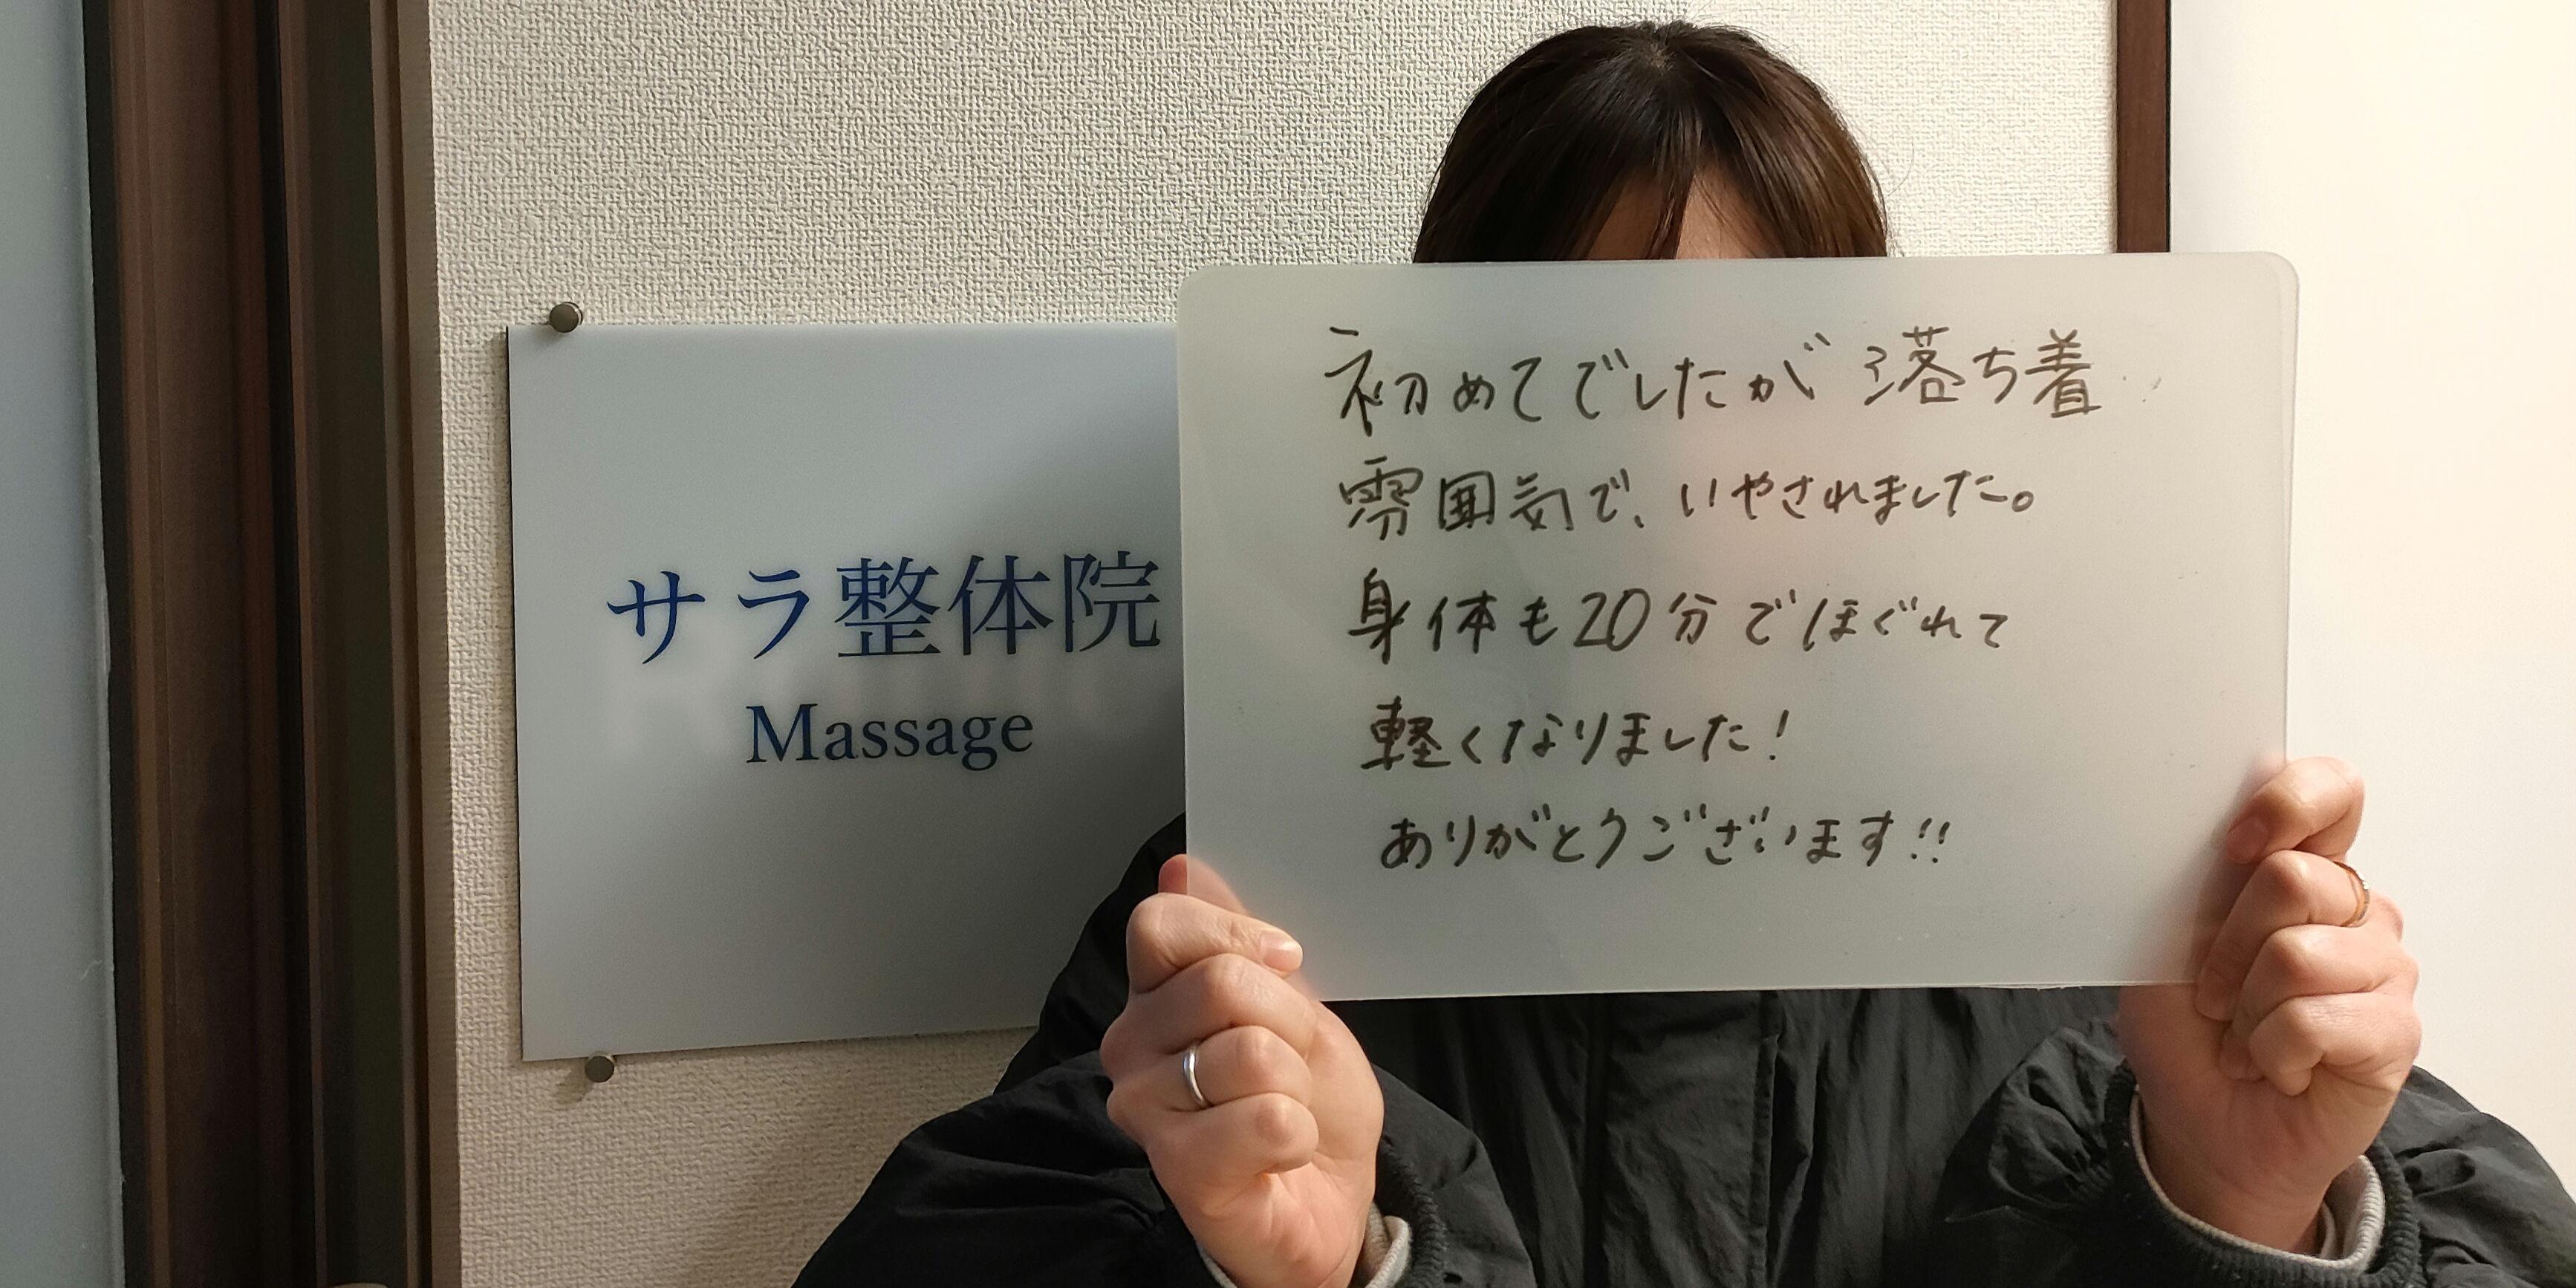 サラ整体院
Massage
初めてでしたが落ち着
雰囲気で、いやされました。
身体も20分でほぐれて
軽くなりました!
ありがとうございます!!